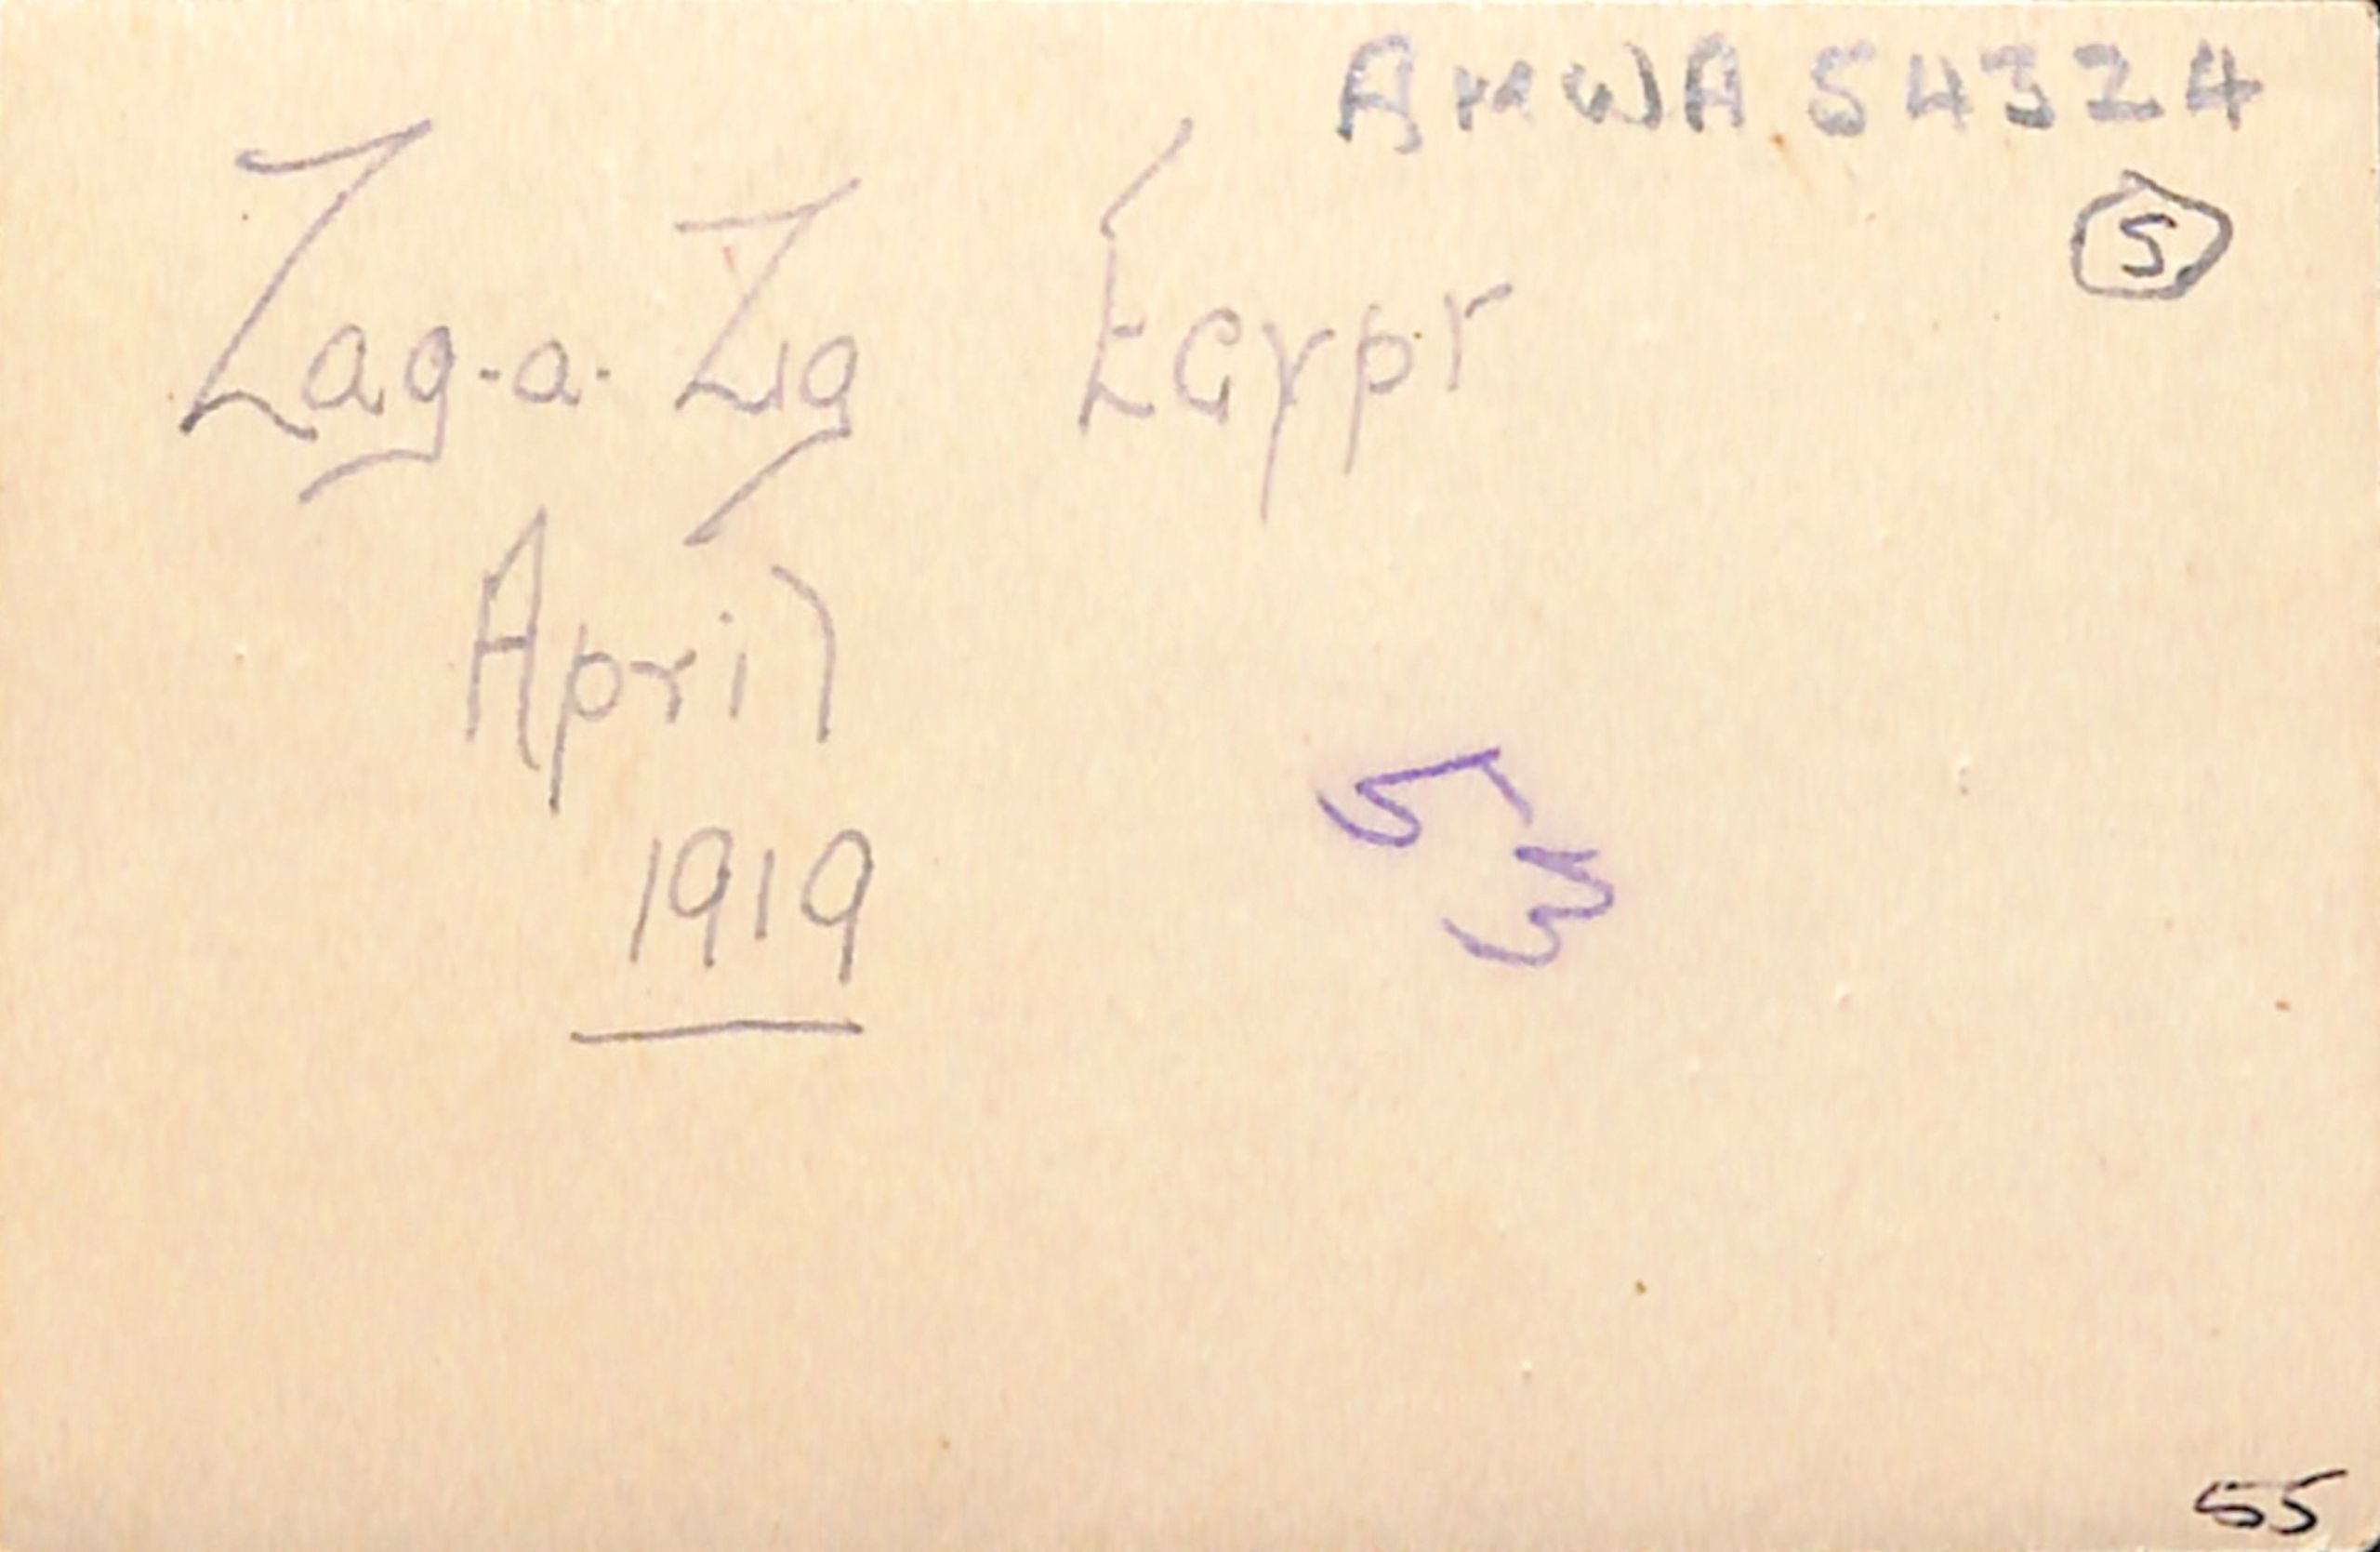 AMWA 54324
5
Zag.a. Zig Egypt
April
1919
53
55